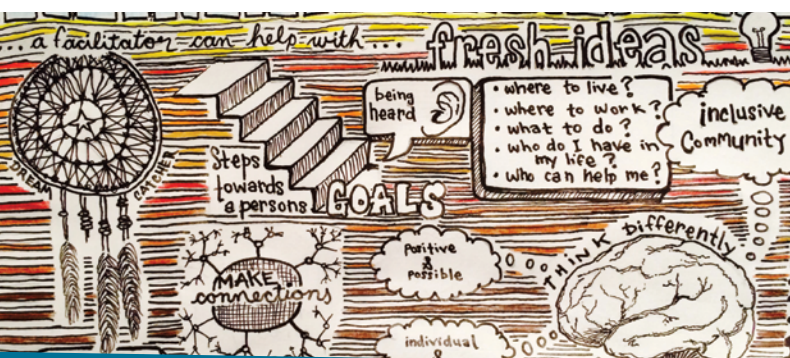 ...a facilitator can help with...
fresh ideas
DREAM CATCHER
Steps
towards
a persons GOALS
being
heard
• where to live?
• where to work?
• what to do?
• who do I have in
my life?
• who can help me?
inclusive
Community
MAKE
connections
Positive
&
possible
THINK differently
individual
&